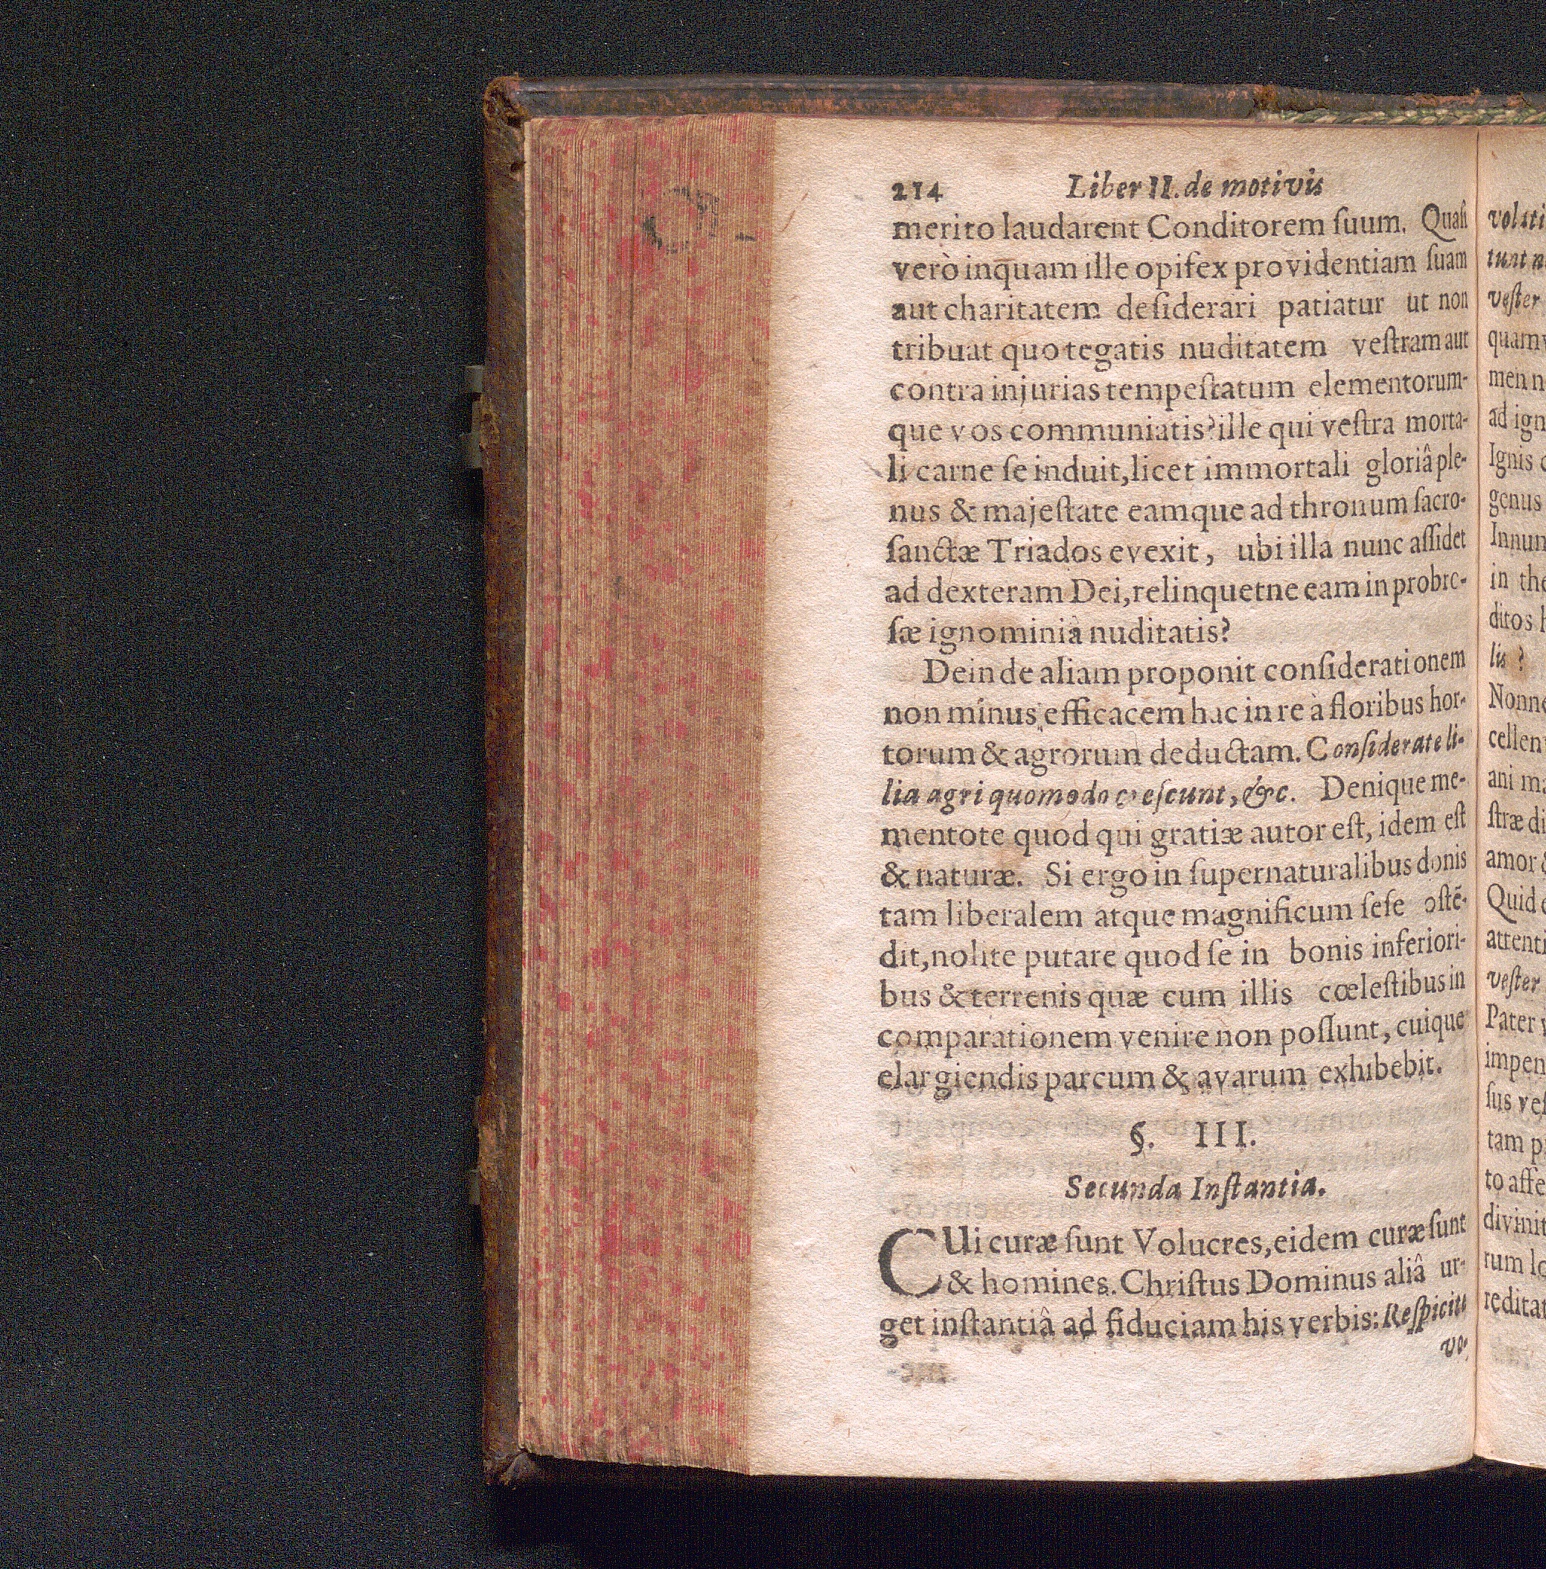 214 Liber II. de motivis
merito laudarent Conditorem ſuum. Quaſi
verò inquam ille opifex providentiam ſuam
aut charitatem deſiderari patiatur ut non
tribuat quo tegatis nuditatem veſtram aut
contra injurias tempeſtatum elementorum-
que vos communiatis? ille qui veſtra morta-
li carne ſe induit, licet immortali gloriâ ple-
nus & majeſtate eamque ad thronum ſacro-
ſanctæ Triados evexit, ubi illa nunc aſſidet
ad dexteram Dei, relinquetne eam in probro-
ſæ ignominiâ nuditatis?
Deinde aliam proponit conſiderationem
non minus efficacem hac in re à floribus hor-
torum & agrorum deductam. Conſiderate li-
lia agri quomodo creſcunt, &c. Denique me-
mentote quod qui gratiæ autor eſt, idem eſt
& naturæ. Si ergo in ſupernaturalibus donis
tam liberalem atque magnificum ſeſe oſtẽ-
dit, nolite putare quod ſe in bonis inferiori-
bus & terrenis quæ cum illis cœleſtibus in
comparationem venire non poſſunt, cuique
elargiendis parcum & avarum exhibebit.
§. III.
Secunda Inſtantia.
CUi curæ ſunt Volucres, eidem curæ ſunt
& homines. Chriſtus Dominus aliâ ur-
get inſtantiâ ad fiduciam his verbis: Reſpicite
vo-
tunt
veſter
quam
men
ad ign
Ignis
genus
in
ditos
lis?
cellen
ani
ſtræ di
amor
Quid
attenti
veſter
Pater
impen
ſus veſ
tam
to affe
divinit
rum